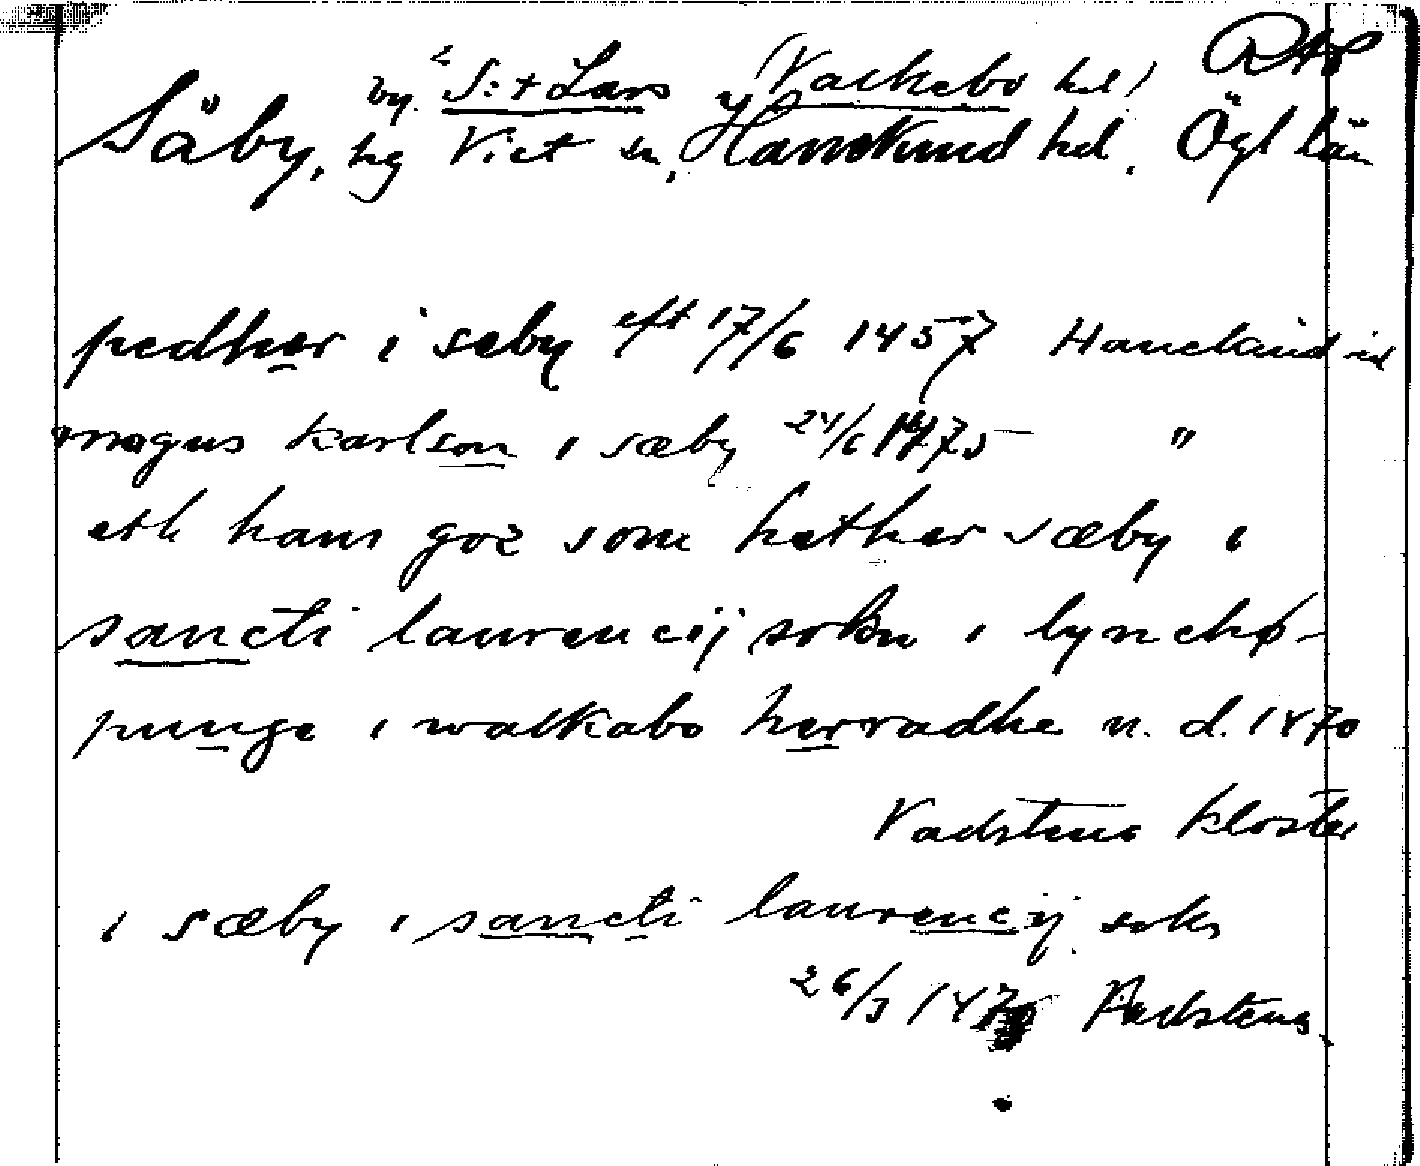 by. St Lars (Valkebo hd) RAp
Säby, hg Vist sn, Hanekind hd. Ögl län
pedher i seby eft 17/6 1457 Hanekind hd
magnus karlson i sæby 24/6 1475 "
eth hans goz som hether sæby i
sancti laurencij sokn i lynchø-
punge i walkabo herradhe n. d. 1470
Vadstena kloster
i sæby i sancti laurencij sokn
26/3 1470 Vadstena